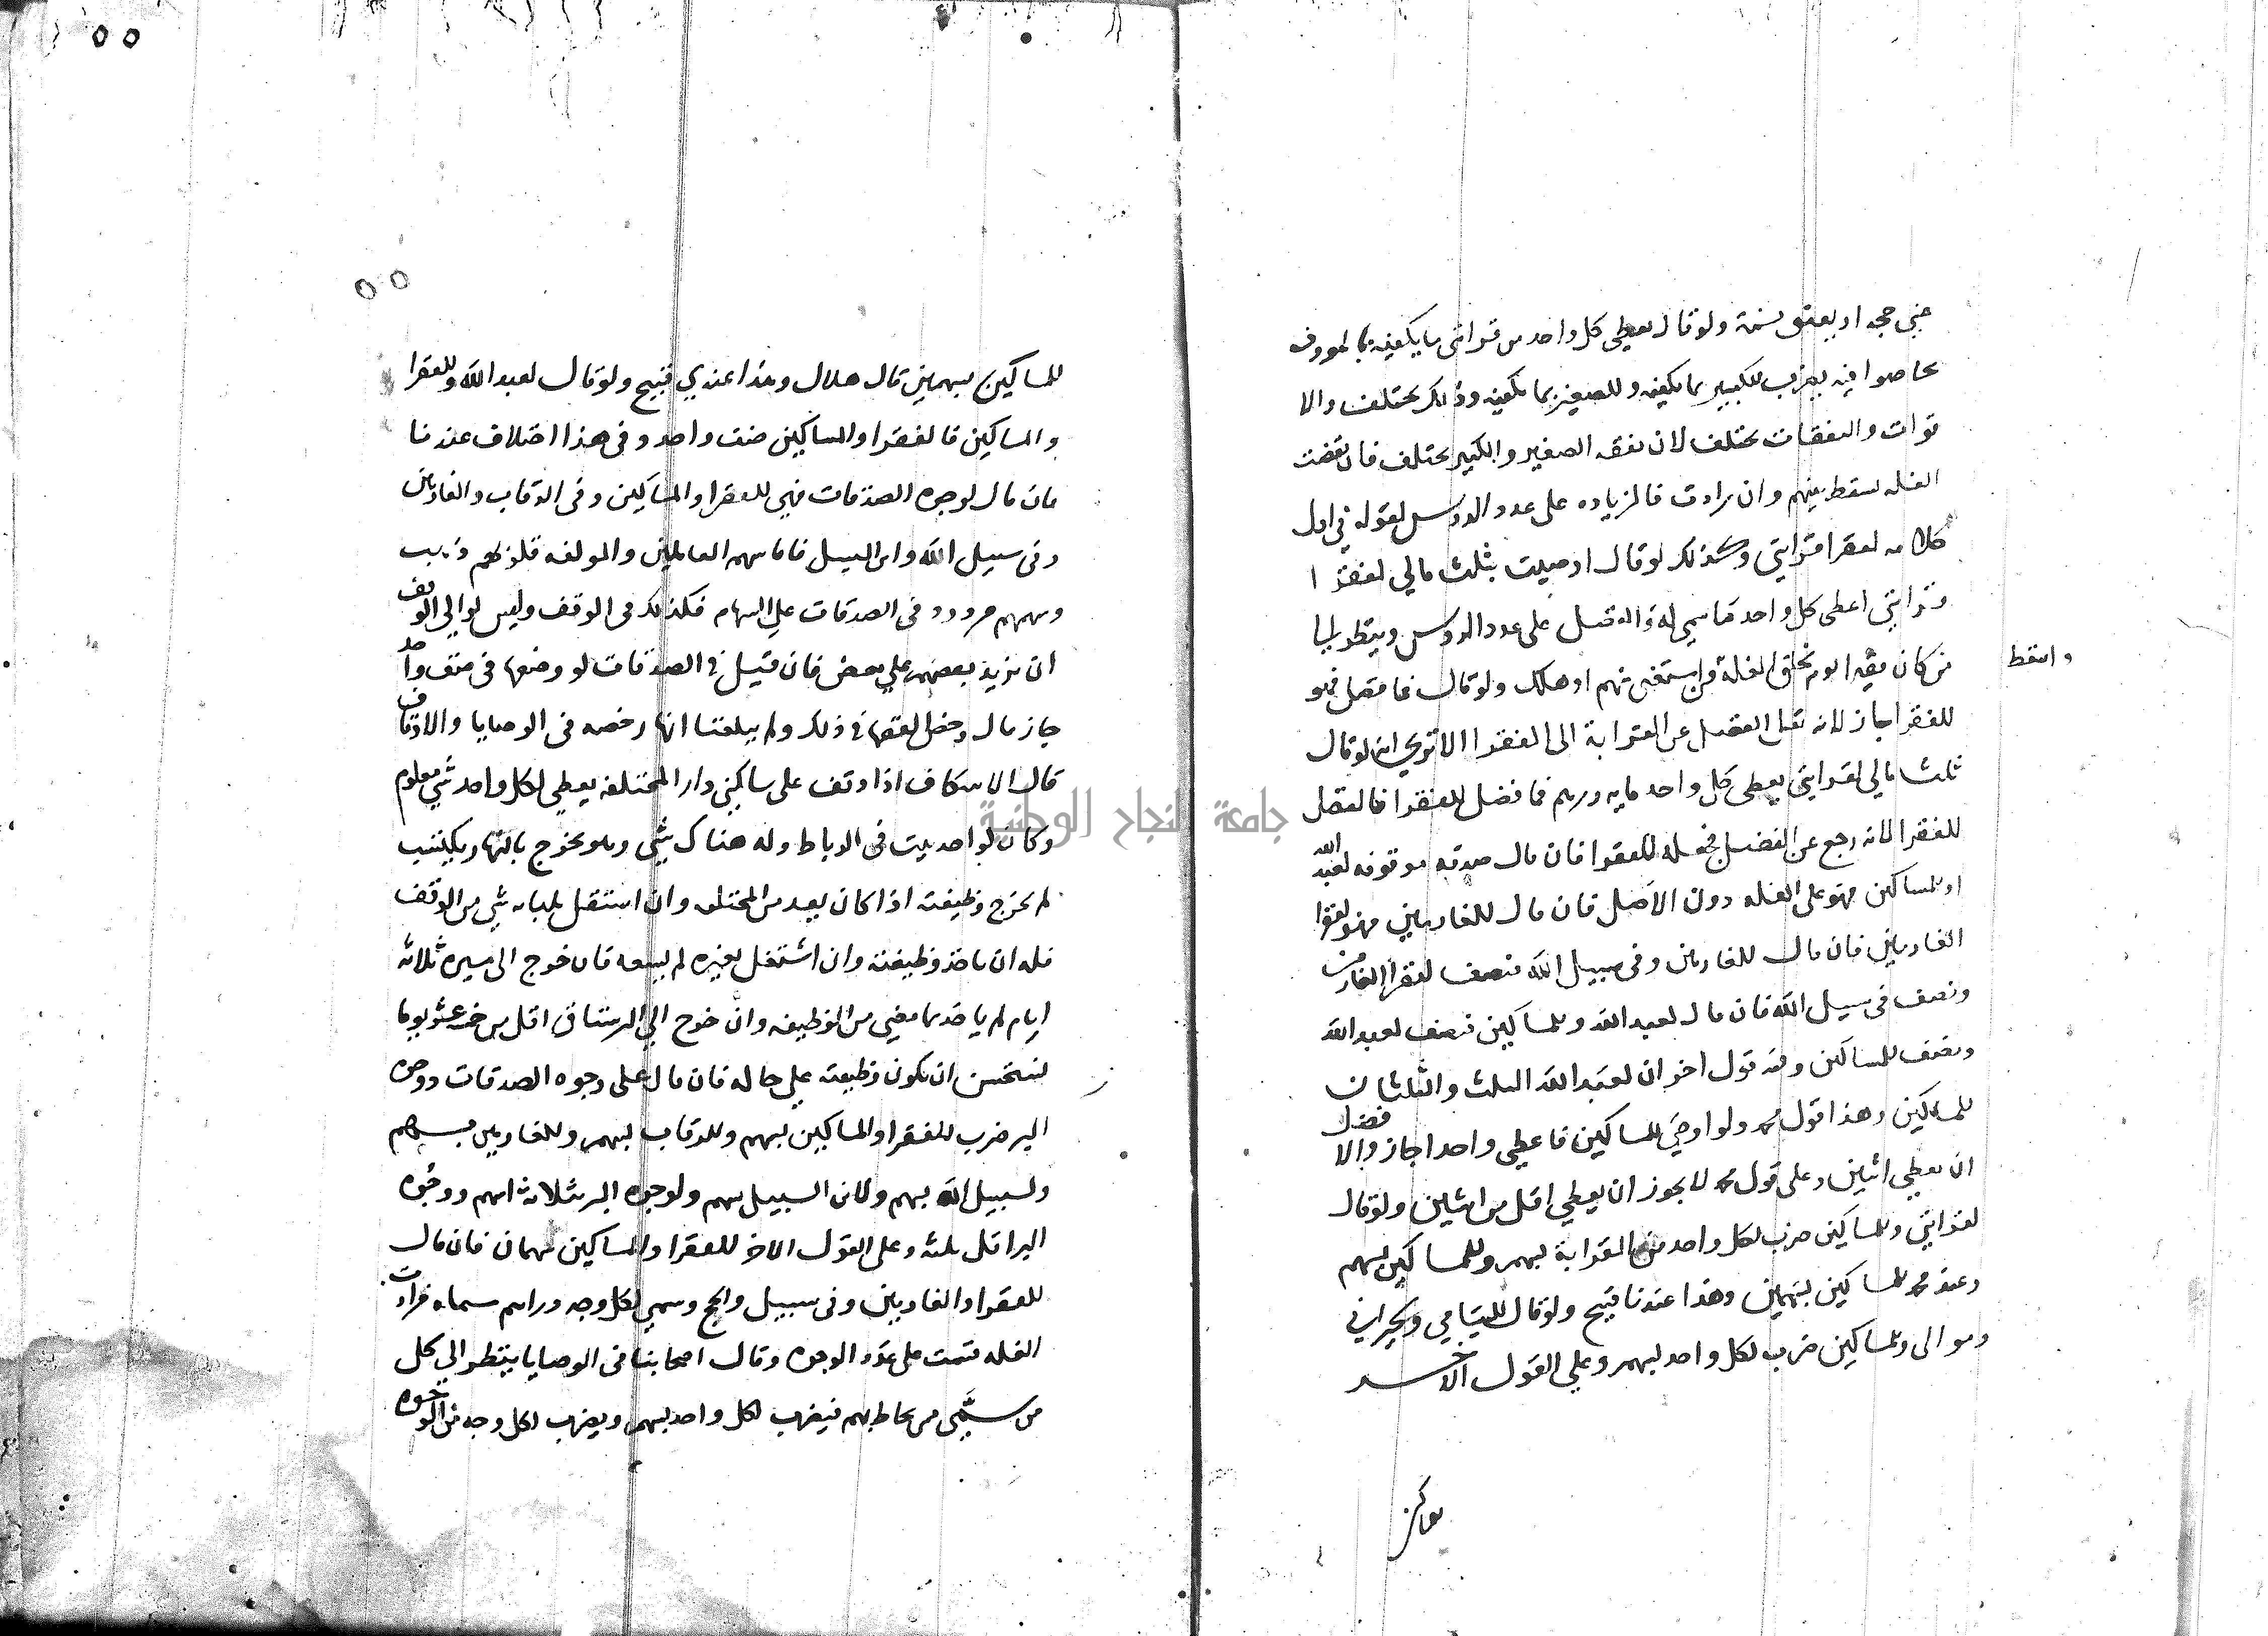 عني حجه او يعتق نسمة ولو قال يعطي كل واحد من قرابتي ما يكفيه بالمعروف
تحاصوا فيه يضرب للكبير بما يكفيه وللصغير بما يكفيه وذلك يختلف والا
قوات والنفقات تختلف لان نفقه الصغير والكبير تختلف فان نقصت
الغله سقط بينهم وان زادت فالزياده على عدد الروس لقوله في اول
كلامه لفقرا قرابتي وكذلك لو قال اوصيت بثلث مالي لفقرا
قرابتي اعطى كل واحد ما سمي له والفضل على عدد الروس وينظر الى
من كان فقيرا يوم تخلق الغلة من استغنى منهم او هلك ولو قال فما فضل فهو
واسقط
للفقرا جاز لانه نقل الفضل عن القرابة الى الفقرا الا ترى انه لو قال
ثلث مالي لقرابتي يعطى كل واحد مايه درهم فما فضل للفقرا فالفضل
للفقرا لانه رجع عن الفضل فجعله للفقرا فان قال صدقه موقوفه لعبد الله
او للمساكين فهو على الغله دون الاصل فان قال للغارمين فهو لفقرا
الغارمين فان قال للغارمين وفي سبيل الله فنصف لفقرا الغارمين
ونصف في سبيل الله فان قال لعبد الله وللمساكين فنصف لعبد الله
ونصف للمساكين وفيه قول اخر ان لعبد الله الثلث والثلثان
للمساكين وهذا قول محمد ولو اوصى للمساكين فاعطي واحدا جاز والافضل
ان يعطي اثنين وعلى قول محمد لا يجوز ان يعطي اقل من اثنين ولو قال
لقرابتي وللمساكين ضرب لكل واحد من القرابة بسهم وللمساكين بسهم
وعند محمد للمساكين بسهمين وهذا عندنا قبيح ولو قال لليتامي ولجيراني
وموالى وللمساكين ضرب لكل واحد بسهم وعلي القول الاخر
للمساكين بسهمين قال هلال وهذا عندي قبيح ولو قال لعبد الله وللفقرا
والمساكين فالفقرا والمساكين صنف واحد وفي هذا اختلاف عندنا
فان قال لوجوه الصدقات فهي للفقرا والمساكين وفى الرقاب والغارمين
وفى سبيل الله وابن السبيل فاما سهم العاملين والمولفه قلوبهم ذهب
وسهمهم مردود فى الصدقات على السهام فكذلك فى الوقف وليس لوالي الوقف
ان يزيد بعضهم علي بعض فان قيل في الصدقات لو وضعها فى صنف واحد
جاز قال رخص الفقها في ذلك ولم يبلغنا انها رخصه فى الوصايا والاوقاف
قال الاسكاف اذا وقف على ساكني دار المختلفه يعطي لكل واحد شي معلوم
وكان لواحد بيت فى الرباط وله هناك شي وهو يخرج بالنهار ويكتسب
لم يخرج وظيفته اذا كان يعد من المختلفه وان استقل شي من الوقف
فله ان ياخذ وظيفته وان اشتغل بغيره لم يسعه فان خرج الى مسيرة ثلاثه
ايام لم ياخذ مما مضي من الوظيفه وان خرج الي الرستاق اقل من خمسة عشر يوما
نستحسن ان يكون وظيفته علي حاله فان قال على وجوه الصدقات ووجوه
البر ضرب للفقرا والمساكين بسهم وللرقاب بسهم وللغارمين بسهم
ولسبيل الله بسهم ولابن السبيل سهم ولوجوه البر ثلاثة اسهم ووجوه
البر اقل ثلثه وعلى القول الاخر للفقرا والمساكين سهمان فان قال
للفقرا والغارمين وفى سبيل والحج وسمي لكل وجه دراهم مسماه فزادت
الغله قسمت على عدد الوجوه وقال اصحابنا فى الوصايا ينظر الي كل
من سمى من يحاط بهم فيضرب لكل واحد بسهم ويضرب لكل وجه من الوجوه
جامعة النجاح الوطنية